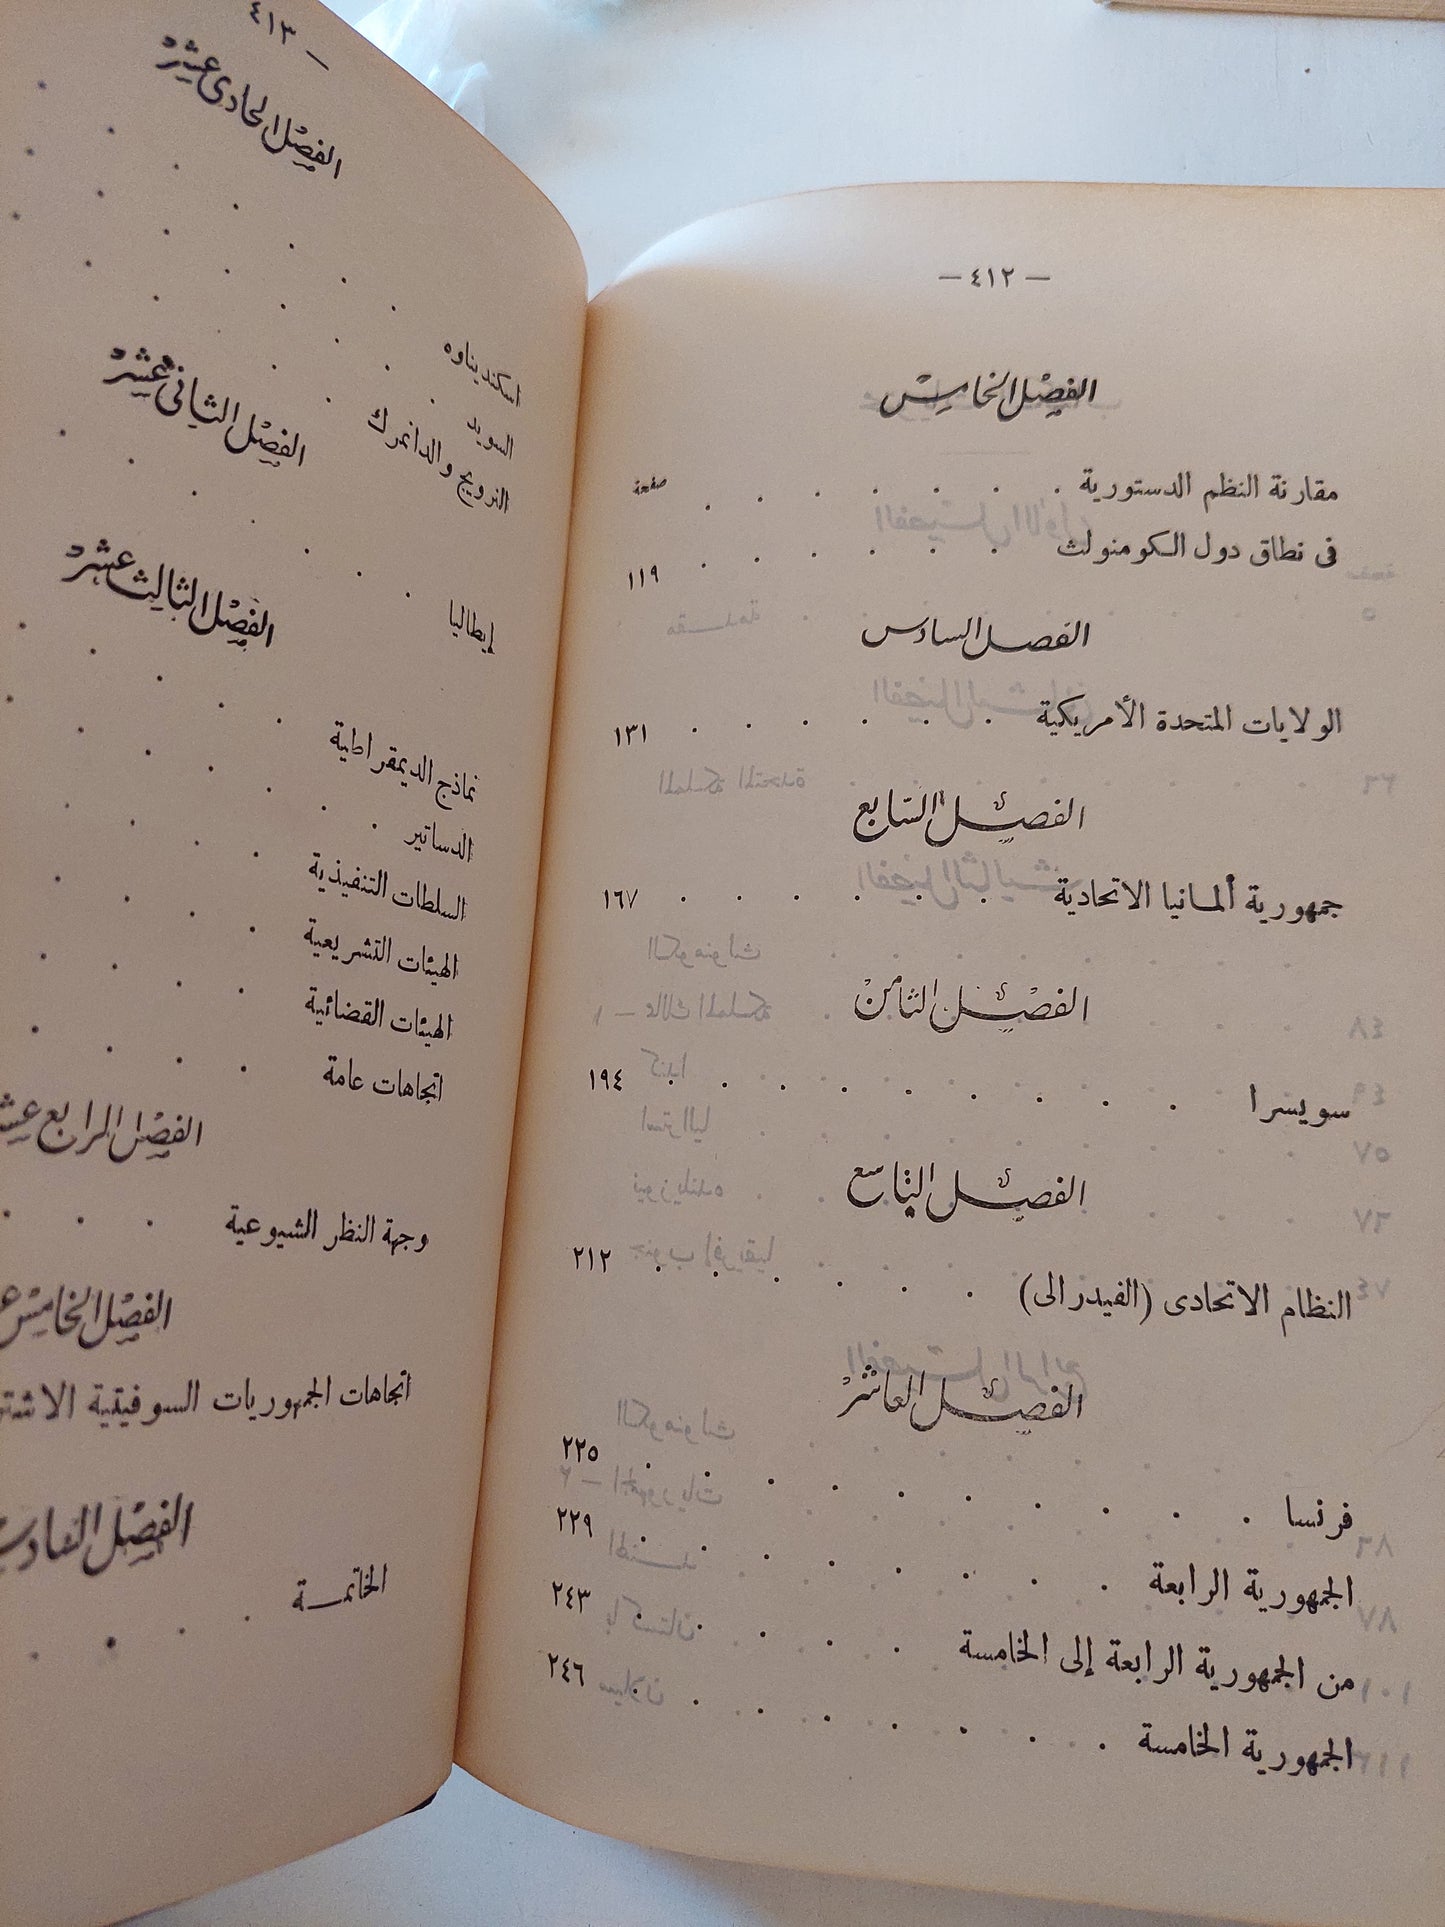 — ٤١٢ —
الفصل الخامس
صفحة
مقارنة النظم الدستورية . . . . . . .
فى نطاق دول الكومنولث . . . . . . ١١٩
الفصل السادس
الولايات المتحدة الأمريكية . . . . . . ١٣١
الفصل السابع
جمهورية ألمانيا الاتحادية . . . . . . ١٦٧
الفصل الثامن
سويسرا . . . . . . . . ١٩٤
الفصل التاسع
النظام الاتحادى (الفيدرالى) . . . . . . ٢١٢
الفصل العاشر
فرنسا . . . . . . . . . . ٢٢٥
الجمهورية الرابعة . . . . . . . . ٢٢٩
من الجمهورية الرابعة إلى الخامسة . . . . ٢٤٣
الجمهورية الخامسة . . . . . . . ٢٤٦
— ٤١٣
الفصل الحادى عشر
اسكنديناوه . . . . . . .
السويد . . . . . . .
النرويج والدانمرك . . . . .
الفصل الثانى عشر
إيطاليا . . . . . . .
الفصل الثالث عشر
نماذج الديمقراطية . . . . .
الدساتير . . . . . .
السلطات التنفيذية . . . .
الهيئات التشريعية . . . .
الهيئات القضائية . . . .
اتجاهات عامة . . . .
الفصل الرابع
وجهة النظر الشيوعية . . .
الفصل الخامس
اتجاهات الجمهوريات السوفيتية
الفصل
الخاتمـــة . . . .